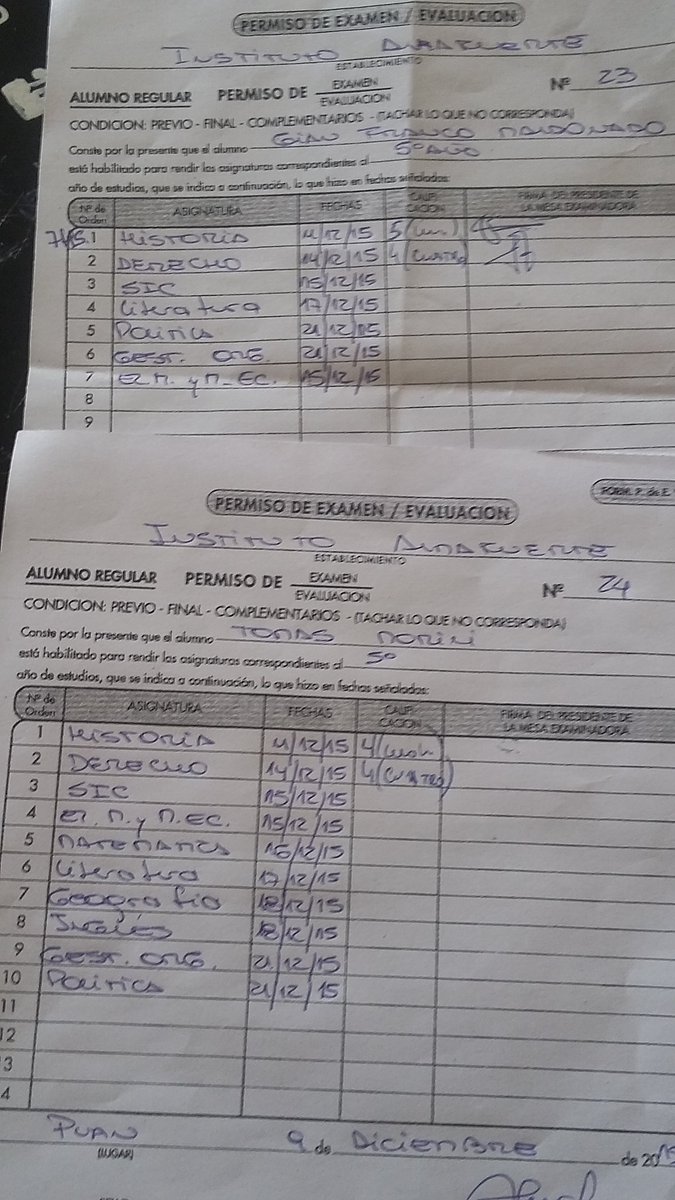 PERMISO DE EXAMEN / EVALUACION
INSTITUTO
ESTABLECIMIENTO
ALUMNO REGULAR PERMISO DE EXAMEN Nº 23
EVALUACION
CONDICION: PREVIO - FINAL - COMPLEMENTARIOS - (TACHAR LO QUE NO CORRESPONDA)
Conste por la presente que el alumno GIAN FRANCO MALDONADO
está habilitado para rendir las asignaturas correspondientes al 5º AÑO
año de estudios, que se indica a continuación, lo que hizo en fechas señaladas:
Nº de Orden ASIGNATURA FECHAS CALIFICACION FIRMA DEL PRESIDENTE DE LA MESA EXAMINADORA
1 HISTORIA 11/12/15 5
2 DERECHO 14/12/15 4 (CUATRO)
3 SIC 15/12/15
4 Literatura 17/12/15
5 Politica 21/12/15
6 GEST. ORG. 21/12/15
7 EL M. y M. EC. 15/12/15
8
9
FORM. P. de E.
PERMISO DE EXAMEN / EVALUACION
INSTITUTO
ESTABLECIMIENTO
ALUMNO REGULAR PERMISO DE EXAMEN Nº 24
EVALUACION
CONDICION: PREVIO - FINAL - COMPLEMENTARIOS - (TACHAR LO QUE NO CORRESPONDA)
Conste por la presente que el alumno TOMAS MORINI
está habilitado para rendir las asignaturas correspondientes al 5º
año de estudios, que se indica a continuación, lo que hizo en fechas señaladas:
Nº de Orden ASIGNATURA FECHAS CALIFICACION FIRMA DEL PRESIDENTE DE LA MESA EXAMINADORA
1 HISTORIA 11/12/15 4
2 DERECHO 14/12/15 4 (CUATRO)
3 SIC 15/12/15
4 EL M. y M. EC. 15/12/15
5 MATEMATICA 16/12/15
6 Literatura 17/12/15
7 Geografia 18/12/15
8 Inglés 18/12/15
9 GEST. ORG. 21/12/15
10 Politica 21/12/15
11
12
3
4
PUAN 9 de DICIEMBRE de 2015
(LUGAR)